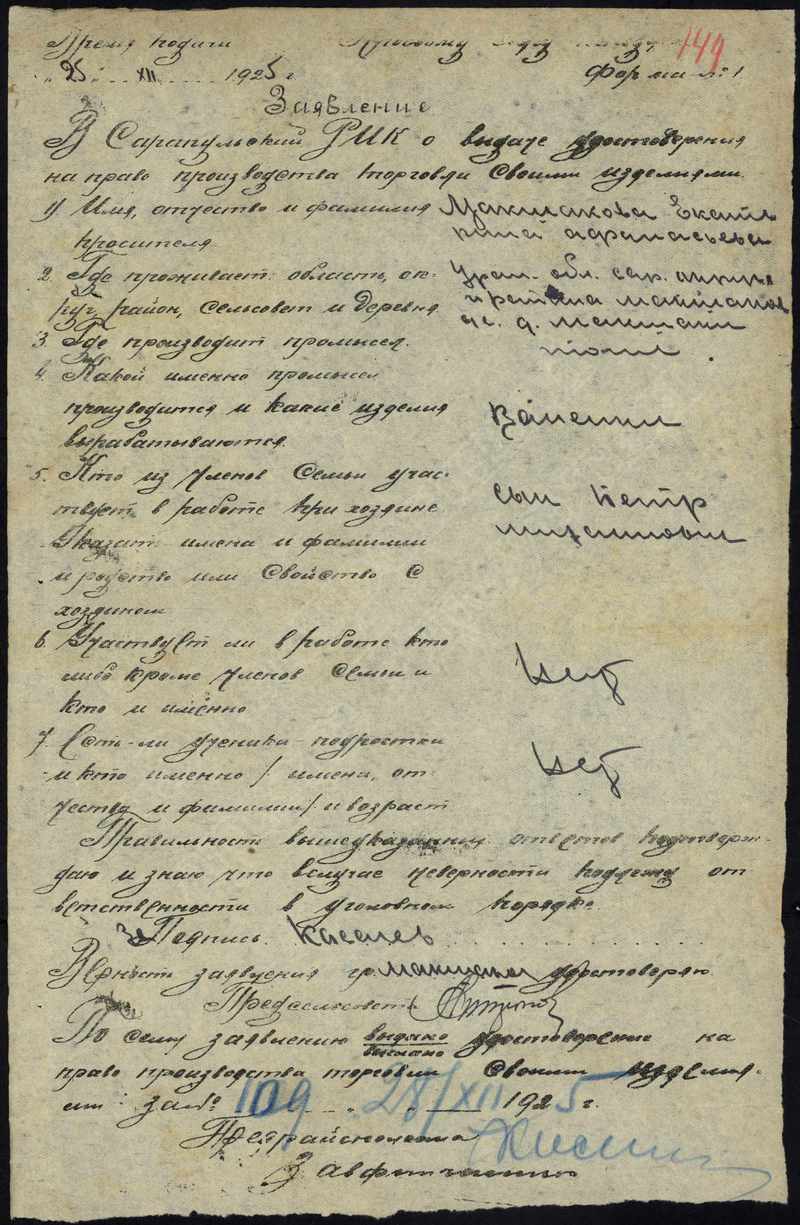 Время подачи
149
"25" XII 1925 г.
Форма № 1
Заявление
В Сарапульский РИК о выдаче удостоверения
на право производства торговли своими изделиями.
1) Имя, отчество и фамилия
просителя
Макшакова Екате
рина Афанасьевна
2. Где проживает: область, ок-
руг, район, сельсовет и деревня
Урал. обл. Сар. округа
д. Макшаки
3. Где производит промысел.
тоже
4. Какой именно промысел
производится и какие изделия
вырабатываются.
5. Кто из членов семьи учас-
твует в работе при хозяине
Указать имена и фамилии
и родство или свойство с
хозяином
сын Петр
6. Участвует ли в работе кто
либо кроме членов семьи и
кто и именно
Нет
7. Есть-ли ученики-подростки
и кто именно / имена, от-
чества и фамилии / и возраст
Нет
Правильность вышеуказанных ответов подтверж-
даю и знаю что в случае неверности подлежу от
ветственности в уголовном порядке.
За Подпись
Верность заявления гр. удостоверяю.
Предсельсовета
По сему заявлению выдано удостоверение на
право производства торговли своими изделия-
ми за № 109 28/XII 1925 г.
Предрайисполкома
Завфинчастью